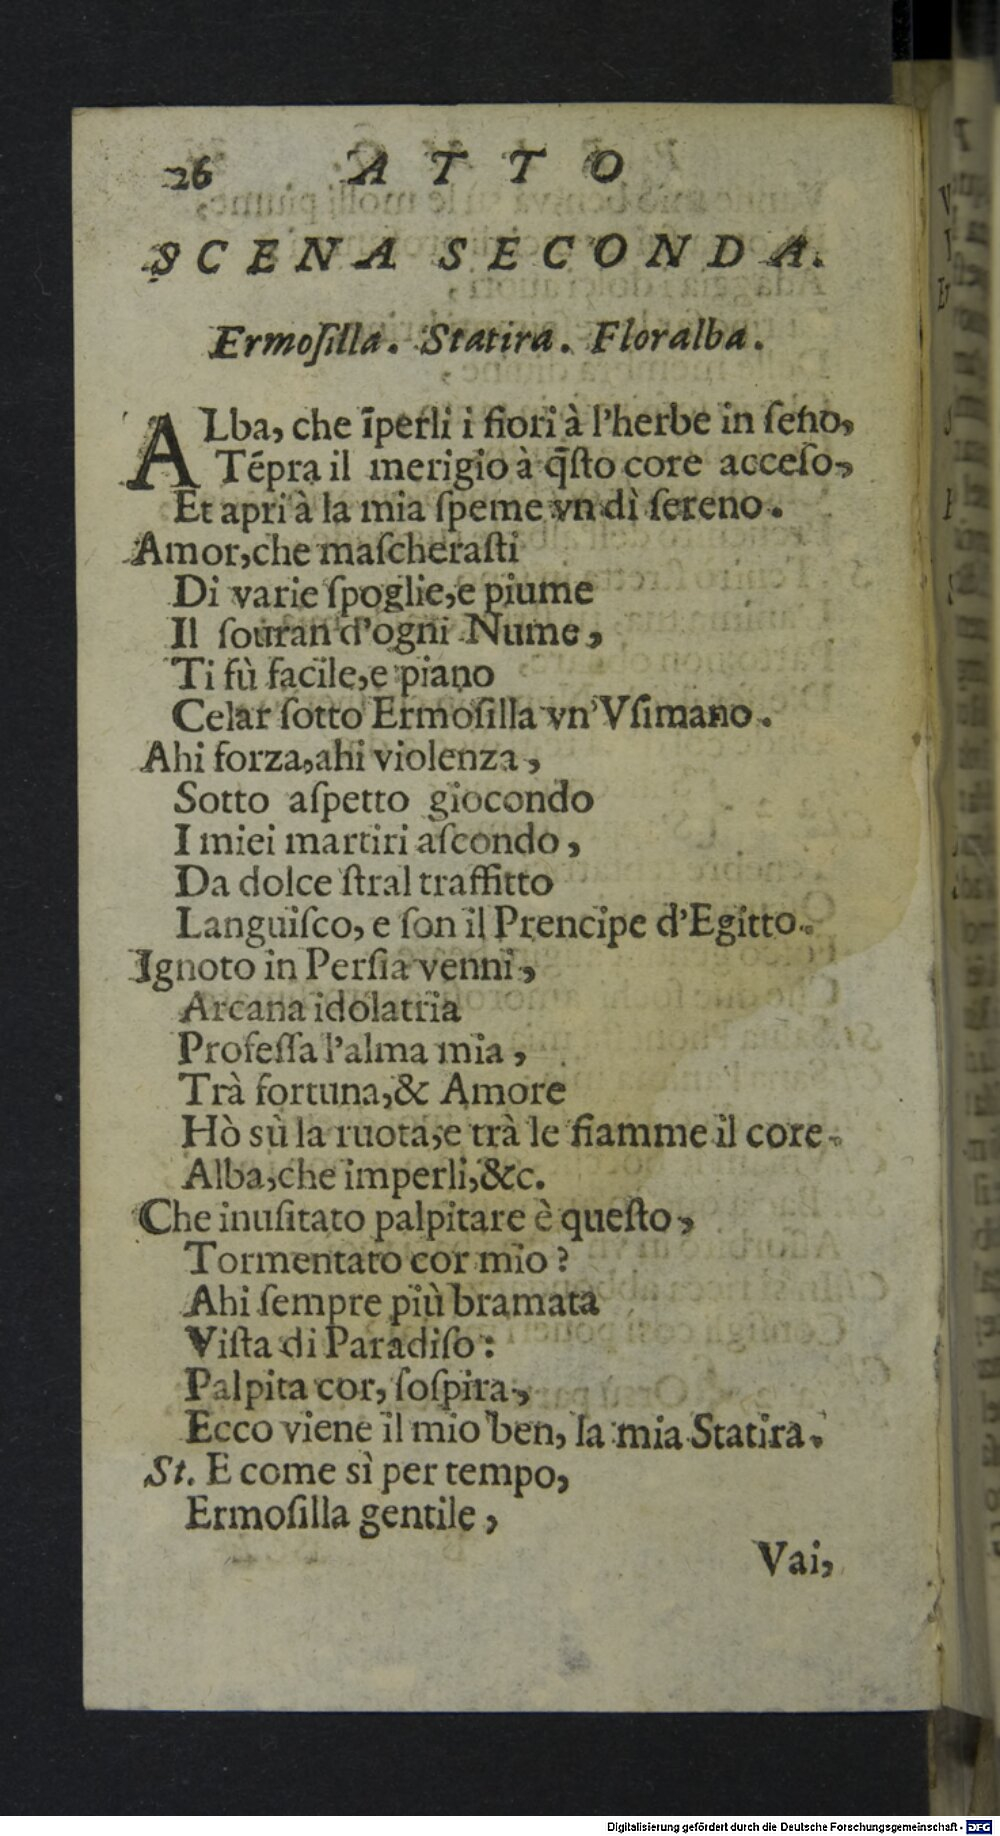 26 ATTO
SCENA SECONDA.
Ermoſilla. Statira. Floralba.
ALba, che īperli i fiori à l'herbe in ſeno,
Tēpra il merigio à q̄ſto core acceſo,
Et apri à la mia ſpeme vn dì ſereno.
Amor, che maſcheraſti
Di varie ſpoglie, e piume
Il ſouran d'ogni Nume,
Ti fù facile, e piano
Celar ſotto Ermoſilla vn'Vſimano.
Ahi forza, ahi violenza,
Sotto aſpetto giocondo
I miei martiri aſcondo,
Da dolce ſtral traffitto
Languiſco, e ſon il Prencipe d'Egitto.
Ignoto in Perſia venni,
Arcana idolatria
Profeſſa l'alma mia,
Trà fortuna, & Amore
Hò sù la ruota, e trà le fiamme il core.
Alba, che imperli, &c.
Che inuſitato palpitare è queſto,
Tormentato cor mio?
Ahi ſempre più bramata
Viſta di Paradiſo:
Palpita cor, ſoſpira,
Ecco viene il mio ben, la mia Statira.
St. E come sì per tempo,
Ermoſilla gentile,
Vai,
Digitalisierung gefördert durch die Deutsche Forschungsgemeinschaft - DFG